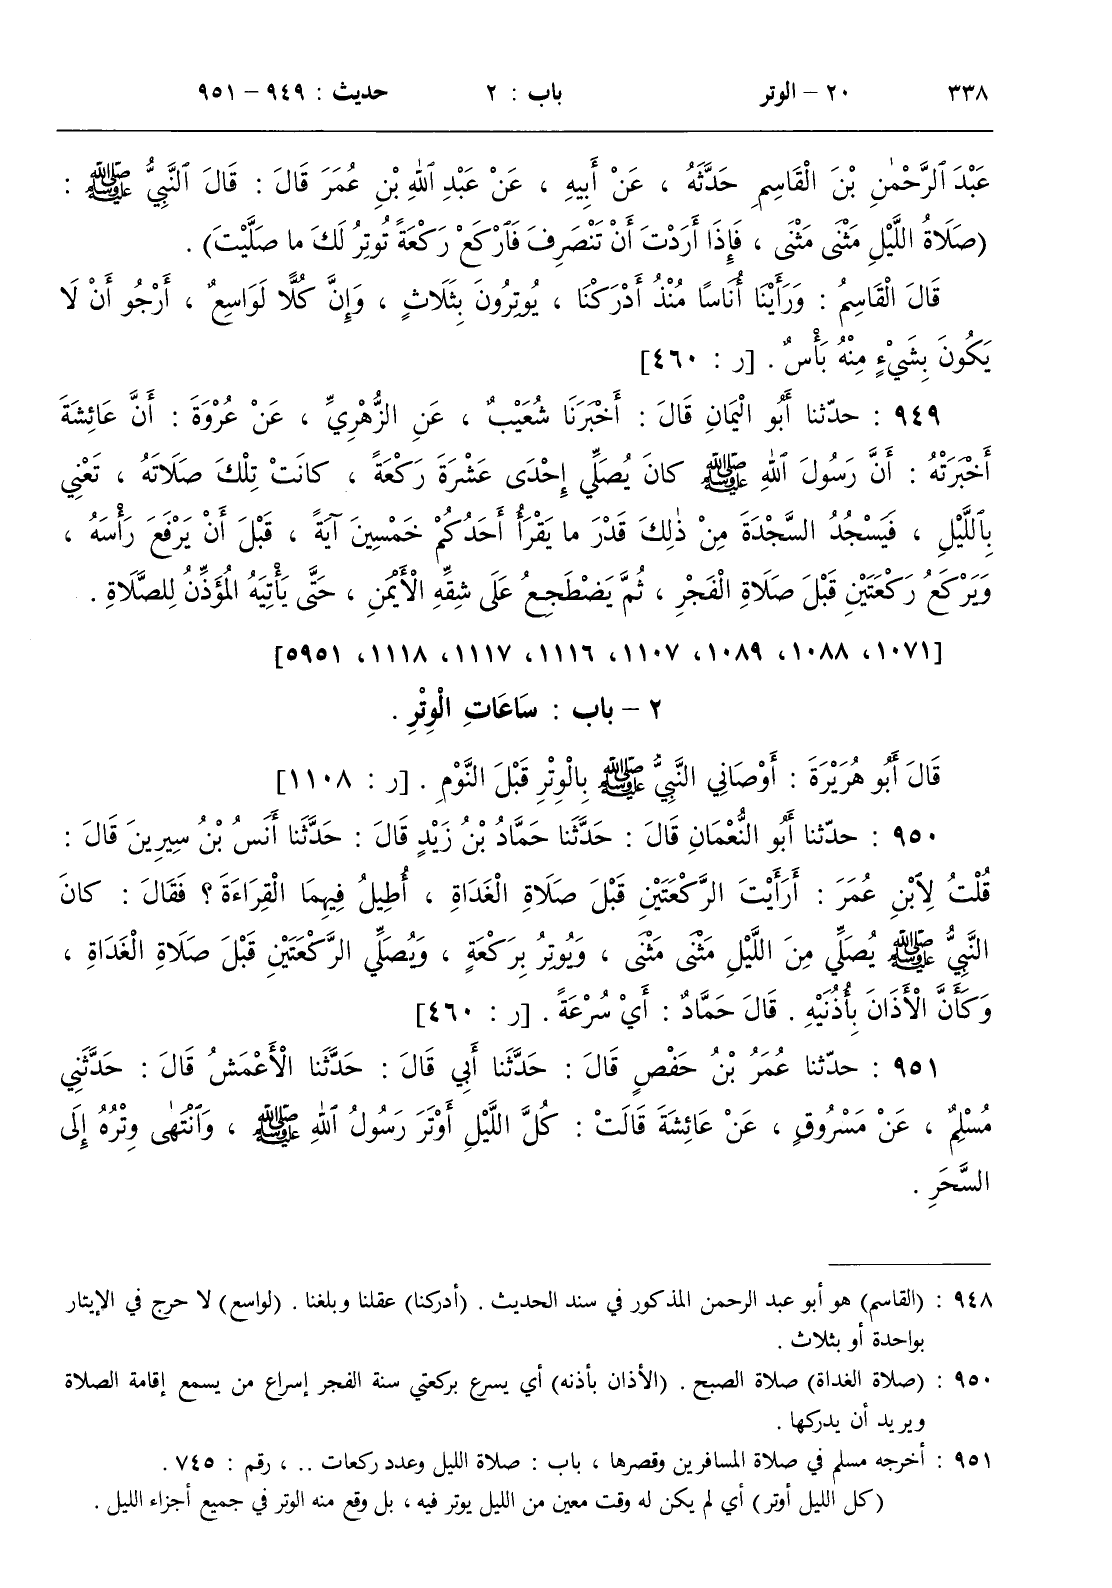 ٣٣٨ ٢٠ – الوتر باب : ٢ حديث : ٩٤٩ – ٩٥١
عَبْدَ ٱلرَّحْمٰنِ بْنَ الْقَاسِمِ حَدَّثَهُ ، عَنْ أَبِيهِ ، عَنْ عَبْدِ ٱللهِ بْنِ عُمَرَ قَالَ : قَالَ ٱلنَّبِيُّ ﷺ :
(صَلَاةُ اللَّيْلِ مَثْنَى مَثْنَى ، فَإِذَا أَرَدْتَ أَنْ تَنْصَرِفَ فَٱرْكَعْ رَكْعَةً تُوتِرُ لَكَ ما صَلَّيْتَ) .
قَالَ الْقَاسِمُ : وَرَأَيْنَا أُنَاسًا مُنْذُ أَدْرَكْنَا ، يُوتِرُونَ بِثَلَاثٍ ، وَإِنَّ كُلًّا لَوَاسِعٌ ، أَرْجُو أَنْ لَا
يَكُونَ بِشَيْءٍ مِنْهُ بَأْسٌ . [ر : ٤٦٠]
٩٤٩ : حدّثنا أَبُو الْيَمَانِ قَالَ : أَخْبَرَنَا شُعَيْبٌ ، عَنِ الزُّهْرِيِّ ، عَنْ عُرْوَةَ : أَنَّ عَائِشَةَ
أَخْبَرَتْهُ : أَنَّ رَسُولَ ٱللهِ ﷺ كانَ يُصَلِّي إِحْدَى عَشْرَةَ رَكْعَةً ، كانَتْ تِلْكَ صَلَاتَهُ ، تَعْنِي
بِٱللَّيْلِ ، فَيَسْجُدُ السَّجْدَةَ مِنْ ذٰلِكَ قَدْرَ ما يَقْرَأُ أَحَدُكُمْ خَمْسِينَ آيَةً ، قَبْلَ أَنْ يَرْفَعَ رَأْسَهُ ،
وَيَرْكَعُ رَكْعَتَيْنِ قَبْلَ صَلَاةِ الْفَجْرِ ، ثُمَّ يَضْطَجِعُ عَلَى شِقِّهِ الْأَيْمَنِ ، حَتَّى يَأْتِيَهُ الْمُؤَذِّنُ لِلصَّلَاةِ .
[١٠٧١، ١٠٨٨، ١٠٨٩، ١١٠٧، ١١١٦، ١١١٧، ١١١٨، ٥٩٥١]
٢ – باب : سَاعَاتِ الْوِتْرِ .
قَالَ أَبُو هُرَيْرَةَ : أَوْصَانِي النَّبِيُّ ﷺ بِالْوِتْرِ قَبْلَ النَّوْمِ . [ر : ١١٠٨]
٩٥٠ : حدّثنا أَبُو النُّعْمَانِ قَالَ : حَدَّثَنا حَمَّادُ بْنُ زَيْدٍ قَالَ : حَدَّثَنا أَنَسُ بْنُ سِيرِينَ قَالَ :
قُلْتُ لِٱبْنِ عُمَرَ : أَرَأَيْتَ الرَّكْعَتَيْنِ قَبْلَ صَلَاةِ الْغَدَاةِ ، أُطِيلُ فِيهِمَا الْقِرَاءَةَ ؟ فَقَالَ : كانَ
النَّبِيُّ ﷺ يُصَلِّي مِنَ اللَّيْلِ مَثْنَى مَثْنَى ، وَيُوتِرُ بِرَكْعَةٍ ، وَيُصَلِّي الرَّكْعَتَيْنِ قَبْلَ صَلَاةِ الْغَدَاةِ ،
وَكَأَنَّ الْأَذَانَ بِأُذُنَيْهِ . قَالَ حَمَّادٌ : أَيْ سُرْعَةً . [ر : ٤٦٠]
٩٥١ : حدّثنا عُمَرُ بْنُ حَفْصٍ قَالَ : حَدَّثَنا أَبِي قَالَ : حَدَّثَنا الْأَعْمَشُ قَالَ : حَدَّثَنِي
مُسْلِمٌ ، عَنْ مَسْرُوقٍ ، عَنْ عَائِشَةَ قَالَتْ : كُلَّ اللَّيْلِ أَوْتَرَ رَسُولُ ٱللهِ ﷺ ، وَٱنْتَهٰى وِتْرُهُ إِلَى
السَّحَرِ .
٩٤٨ : (القاسم) هو أبو عبد الرحمن المذكور في سند الحديث . (أدركنا) عقلنا وبلغنا . (لواسع) لا حرج في الإيتار
بواحدة أو بثلاث .
٩٥٠ : (صلاة الغداة) صلاة الصبح . (الأذان بأذنه) أي يسرع بركعتي سنة الفجر إسراع من يسمع إقامة الصلاة
ويريد أن يدركها .
٩٥١ : أخرجه مسلم في صلاة المسافرين وقصرها ، باب : صلاة الليل وعدد ركعات .. ، رقم : ٧٤٥ .
(كل الليل أوتر) أي لم يكن له وقت معين من الليل يوتر فيه ، بل وقع منه الوتر في جميع أجزاء الليل .